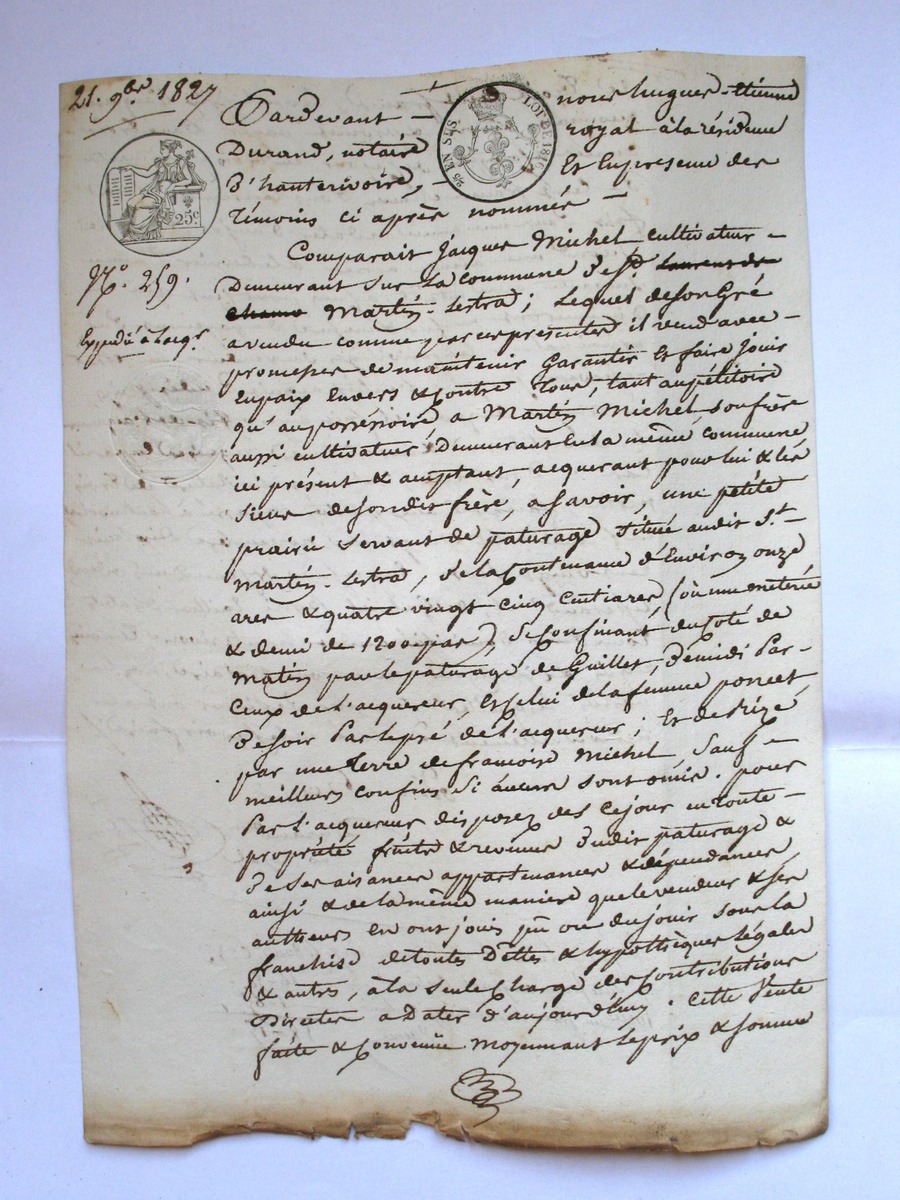 21. 9bre 1827
Pardevant — nous hugues-Etienne
Durand, notaire royal à la résidence
D'hauterivoire, — Et En presence des
Témoins ci après nommés —
25 EN SUS
LOI DE 1816
25c
Comparait Jacques Michel cultivateur —
Demeurant Sur La Commune De St. Laurent de
Chamo Martin-Lestra ; Lequel de Son Gré
N°. 259.
a vendu comme par ces presentes il vend avec —
Expédié à l'acqr.
promesses de maintenir Garantir Et faire Jouir
En paix Envers & Contre Tous, tant au pétitoire
qu'au possessoire, a Martin Michel, Son frère
aussi cultivateur Demeurant En la même commune
ici présent & acceptant, acquerant pour lui & les
Siens de Son dit frère, a Savoir, une petite
prairie Servant de paturage Située audit St.
Martin-Lestra, De la Contenance d'Environ onze
ares & quatre vingt cinq centiares, (où une méterée
& demi de 1200 pas) Se Confinant du Coté de
Matin par le paturage de Guillet, De midi Par
Ceux de L'acquereur, Et Celui de la femme poncet
De Soir Par le pré de L'acquereur ; Et de Bize
par une Terre de francois Michel Sauf —
meilleurs confins Si aucuns Sont omis. pour
Par L'acquereur disposer dès ce jour en toute —
propriété fruits & revenus Dudit paturage &
De Ses aisances appartenances & dépendances
ainsi & de la même maniere que le vendeur & ses
autheurs En ont joui pu ou du jouir Sous la
franchise de toutes Dettes & hypothèques Légales
& autres, à la Seule Charge des Contributions
Directes a Dater d'aujourd'huy. Cette Vente
faite & Convenüe Moyennant Le prix & Somme